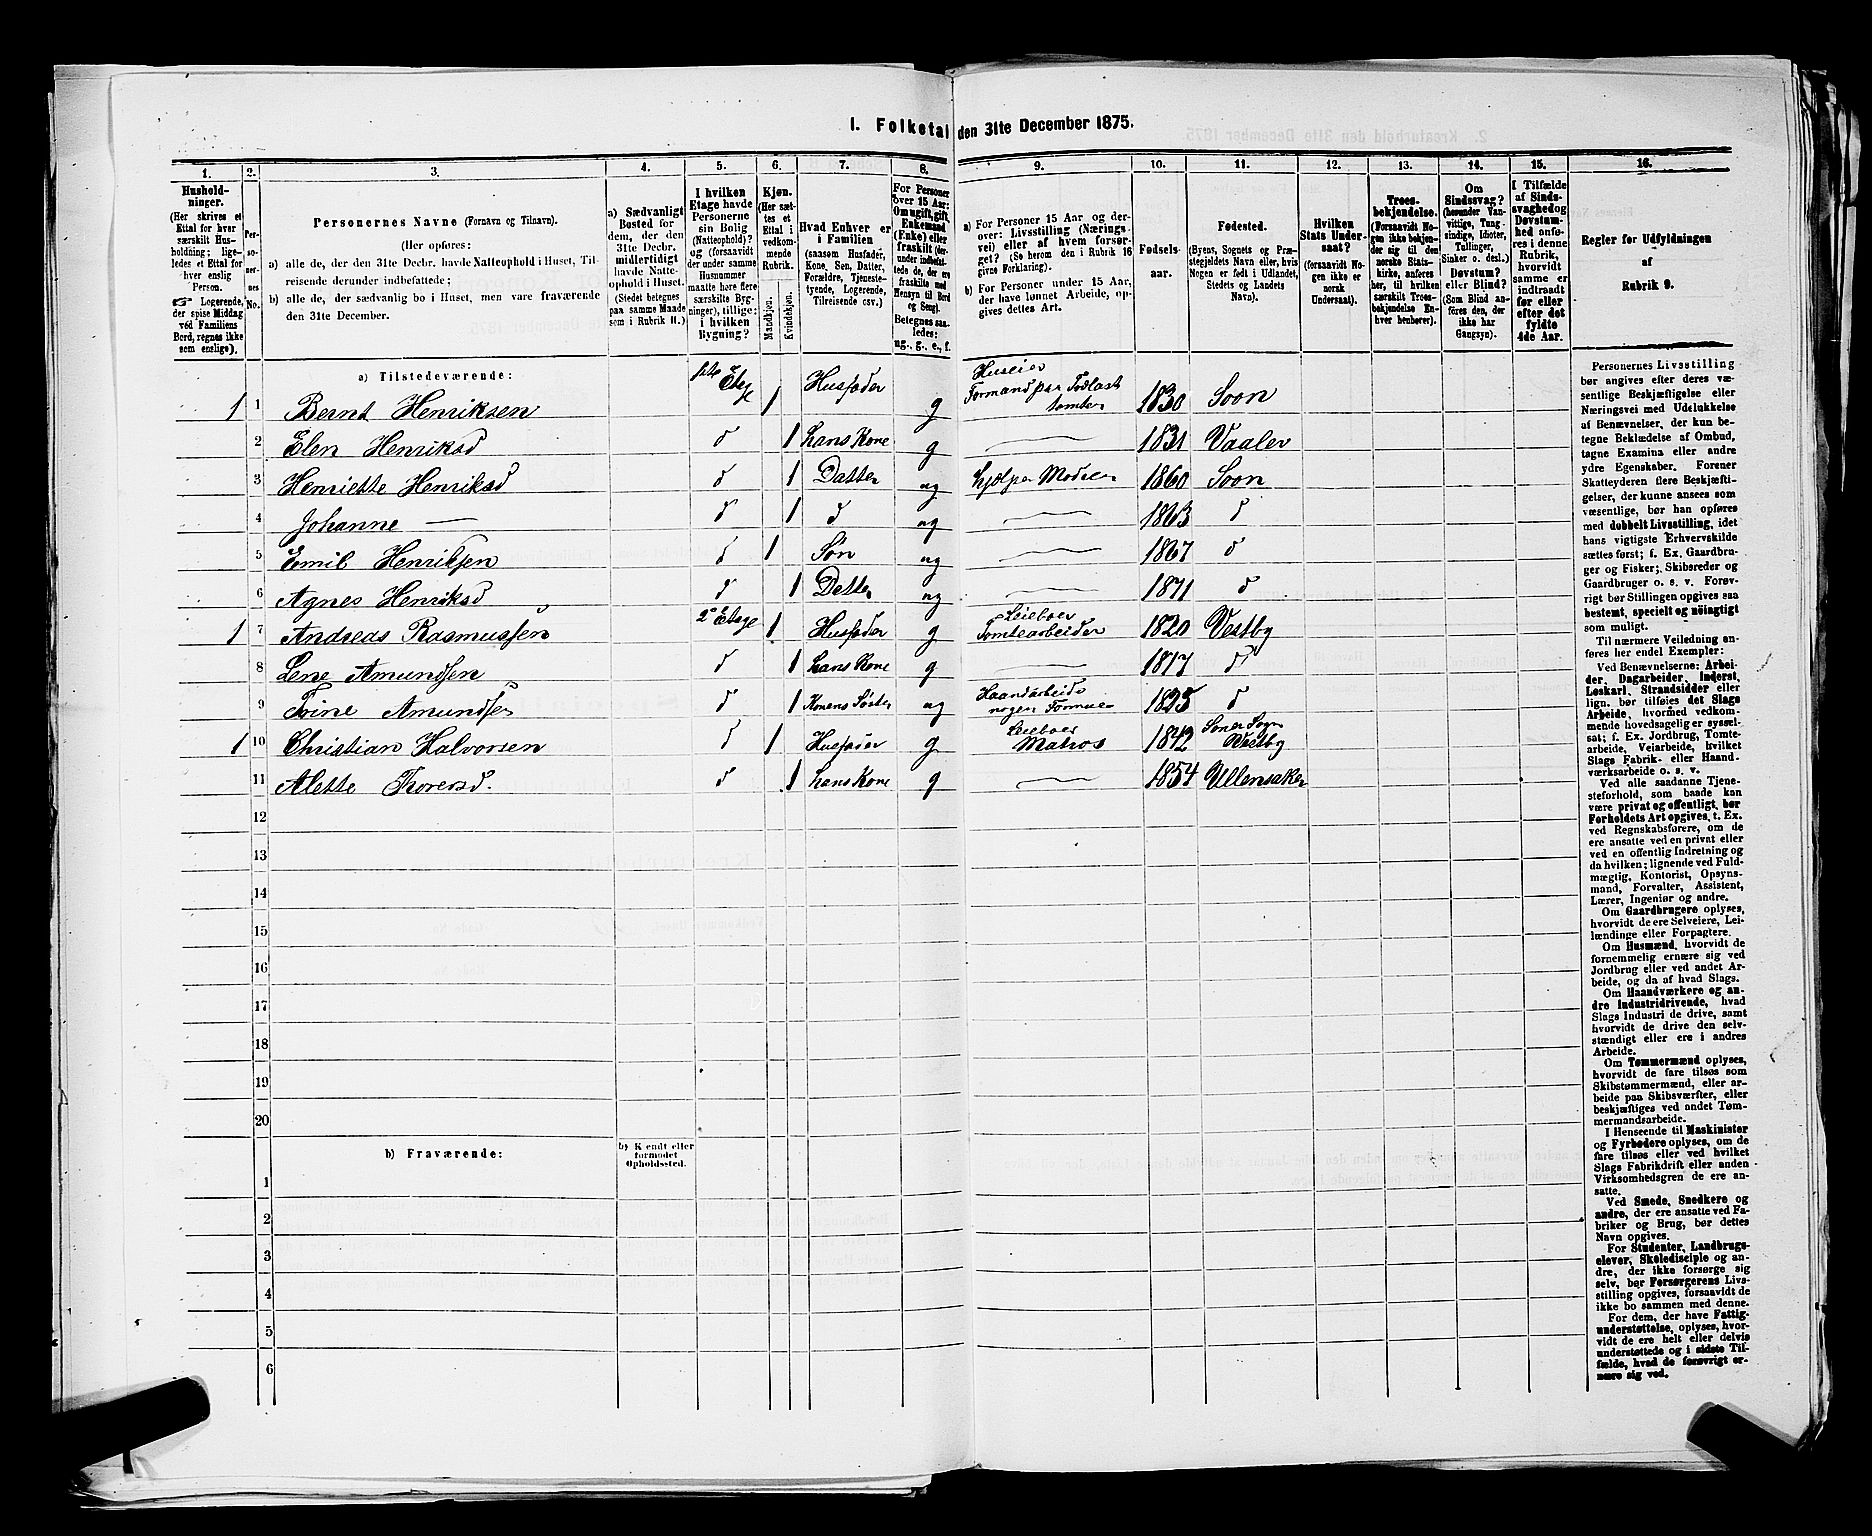 1. Folketal den 31te December 1875.
1. 2. 3. 4. 5. 6. 7. 8. 9. 10. 11. 12. 13. 14. 15. 16.
Husholdninger.
(Her skrives et
Ettal for hver
særskilt Husholdning;
ligeledes et Ettal for
hver enslig
Person.
☞ Logerende,
der spise Middag
ved Familiens
Bord, regnes ikke
som enslige).
Personernes No.
Personernes Navne (Fornavn og Tilnavn).
(Her opføres:
a) alle de, der den 31te Decbr. havde Natteophold i Huset, Tilreisende
derunder indbefattede;
b) alle de, der sædvanlig bo i Huset, men vare fraværende
den 31te December.
a) Sædvanligt
Bosted for
dem, der den
31te Decbr.
midlertidigt
havde Natteophold
i Huset.
(Stedet betegnes
paa samme Maade
som i Rubrik 11.)
I hvilken
Etage havde
Personerne
sin Bolig
(Natteophold)?
og (forsaavidt
der under samme
Husnummer
maatte høre flere
særskilte Bygninger),
tillige:
i hvilken
Bygning?
Kjøn.
(Her sættes
et
Ettal i
vedkommende
Rubrik.
Mandkjøn.
Kvindekjøn.
Hvad Enhver er
i Familien
(saasom Husfader,
Kone, Søn, Datter,
Forældre, Tjenestetyende,
Logerende,
Tilreisende osv.)
For Personer
over 15 Aar:
Om ugift, gift,
Enkemand
(Enke) eller
fraskilt (derunder
indbefattede
de, der ere
fraskilte med
Hensyn til Bord
og Seng).
Betegnes saaledes:
ug., g., e., f.
a) For Personer 15 Aar og derover:
Livsstilling (Næringsvei)
eller af hvem forsørget?
(Se herom den i Rubrik 16
givne Forklaring).
b) For Personer under 15 Aar,
der have lønnet Arbeide, opgives
dettes Art.
Fødselsaar.
Fødested.
(Byens, Sognets og Præstegjeldets
Navn eller, hvis
Nogen er født i Udlandet,
Stedets og Landets
Navn).
Hvilken
Stats Undersaat?
(forsaavidt Nogen
ikke er
norsk
Undersaat).
Troesbekjendelse.
(Forsaavidt Nogen
ikke bekjender
sig til den
norske Statskirke,
anføres
her, til hvilken
særskilt Troesbekjendelse
Enhver
henhører).
Om
Sindssvag?
(herunder Vanvittige,
Tungsindige,
Idioter,
Tullinger,
Sinker o. desl.)
Døvstum?
eller Blind?
(Som Blind anføres
den, der
ikke har
Gangsyn).
I Tilfælde
af Sindssvaghed
og
Døvstumhed
anføres
i denne
Rubrik,
hvorvidt
samme er
indtraadt
før eller
efter det
fyldte
4de Aar.
Regler for Udfyldningen
af
Rubrik 9.
a) Tilstedeværende:
1 1 Bernt Henriksen 1ste Etage 1 Husfader g Huseier Formand paa Tomten 1830 Soon
2 Elen Henriksd d 1 hans Kone g — 1831 Vaaler
3 Henriette Henriksd d 1 Datter ug hjelper Moderen 1860 Soon
4 Johanne — d 1 d ug — 1863 d
5 Emil Henriksen d 1 Søn ug — 1867 d
6 Agnes Henriksd d 1 Detter ug 1871 d
1 7 Andreas Rasmussen 2 Etage 1 Husfader g Leieboer Tomtearbeider 1820 Vestby
8 Lene Amundsen d 1 hans Kone g — 1817 d
9 Trine Amundsen d 1 Konens Søster ug Haandarbeide nogen Formue 1825 d
1 10 Christian Halvorsen d 1 Husfader g Leieboer Matros 1842 Soner Sogn Vestby
11 Alette Thoresd. d 1 hans Kone g — 1854 Ullensaker
12
13
14
15
16
17
18
19
20
b) Fraværende:
b) Kjendt eller
formodet
Opholdssted.
1
2
3
4
5
6
Personernes Livsstilling
bør angives efter deres væsentlige
Beskjæftigelse eller
Næringsvei med Udelukkelse
af Benævnelser, der kun betegne
Beklædelse af Ombud,
tagne Examina eller andre
ydre Egenskaber. Forener
Skatteyderen flere Beskjæftigelser,
der kunne ansees som
væsentlige, bør han opføres
med dobbelt Livsstilling, idet
hans vigtigste Erhvervskilde
sættes først; f. Ex. Gaardbruger
og Fisker; Skibsreder og
Gaardbruger o. s. v. Forøvrigt
bør Stillingen opgives saa
bestemt, specielt og nøiagtigt
som muligt.
Til nærmere Veiledning anføres
her endel Exempler:
Ved Benævnelserne: Arbeider,
Dagarbeider, Inderst,
Løskarl, Strandsidder eller
lign. bør tilføies det Slags
Arbeide, hvormed vedkommende
hovedsagelig er sysselsat;
f. Ex. Jordbrug, Tomtearbeide,
Veiarbeide, hvilket
Slags Fabrik- eller Haandværksarbeide
o. s. v.
Ved alle saadanne Tjenesteforhold,
som baade kan
være privat og offentligt, bør
Forholdets Art opgives, t. Ex.
ved Regnskabsførere, om de
ere ansatte ved en privat eller
ved en offentlig Indretning og
da hvilken; lignende ved Fuldmægtig,
Kontorist, Opsynsmand,
Forvalter, Assistent,
Lærer, Ingeniør og andre.
Om Gaardbrugere oplyses,
hvorvidt de ere Selveiere, Leilændinge
eller Forpagtere.
Om Husmænd, hvorvidt de
fornemmelig ernære sig ved
Jordbrug eller ved andet Arbeide,
og da af hvad Slags.
Om Haandværkere og andre
Industridrivende, hvad
Slags Industri de drive, samt
hvorvidt de drive den selvstændigt
eller ere i andres
Arbeide.
Om Tømmermænd oplyses,
hvorvidt de fare tilsøs som
Skibstømmermænd, eller arbeide
paa Skibsværfter, eller
beskjæftiges ved andet Tømmermandsarbeide.
I Henseende til Maskinister
og Fyrbødere oplyses, om de
fare tilsøs eller ved hvilket
Slags Fabrikdrift eller anden
Virksomhedsgren de ere ansatte.
Ved Smede, Snedkere og
andre, der ere ansatte ved Fabriker
og Brug, bør dettes
Navn opgives.
For Studenter, Landbrugselever,
Skoledisciple og andre,
der ikke forsørge sig
selv, bør Forsørgerens Livsstilling
opgives, forsaavidt de
ikke bo sammen med denne.
For dem, der have Fattigunderstøttelse,
oplyses, hvorvidt
de ere helt eller delvis
understøttede og i sidste Tilfælde,
hvad de forøvrigt ernære
sig ved.